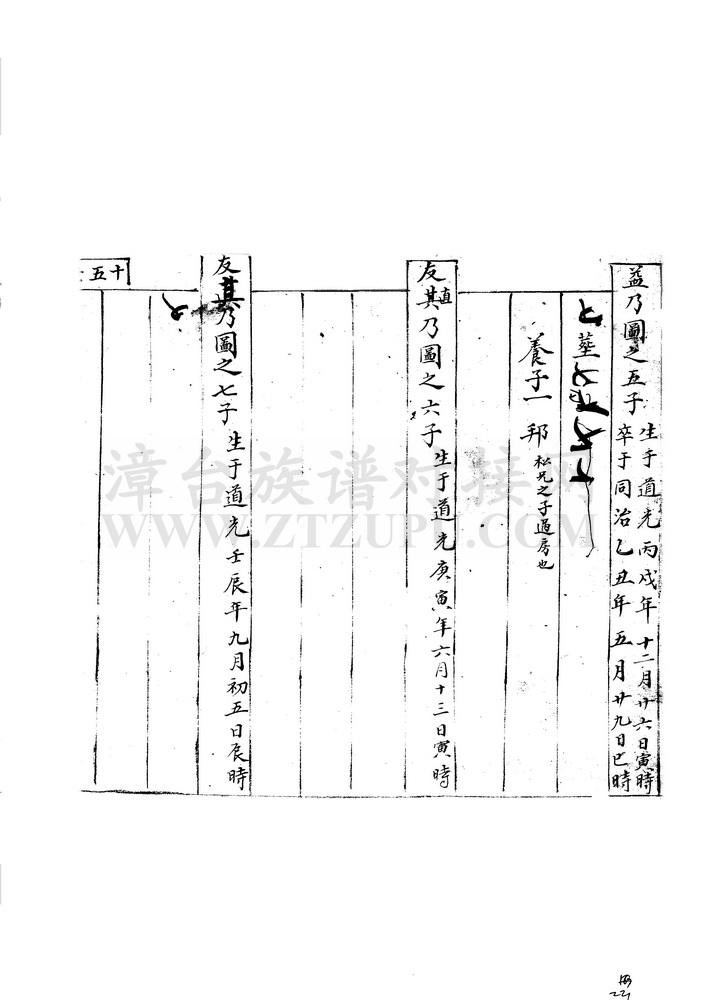 益乃圖之五子
生于道光丙戌年十二月廿六日寅時
卒于同治乙丑年五月廿九日巳時
葬
養子一 邦 松兄之子過房也
友直
其乃圖之六子 生于道光庚寅年六月十三日寅時
友其乃圖之七子 生于道光壬辰年九月初五日辰時
十五
漳台族谱对接网
WWW.ZTZUPU.COM